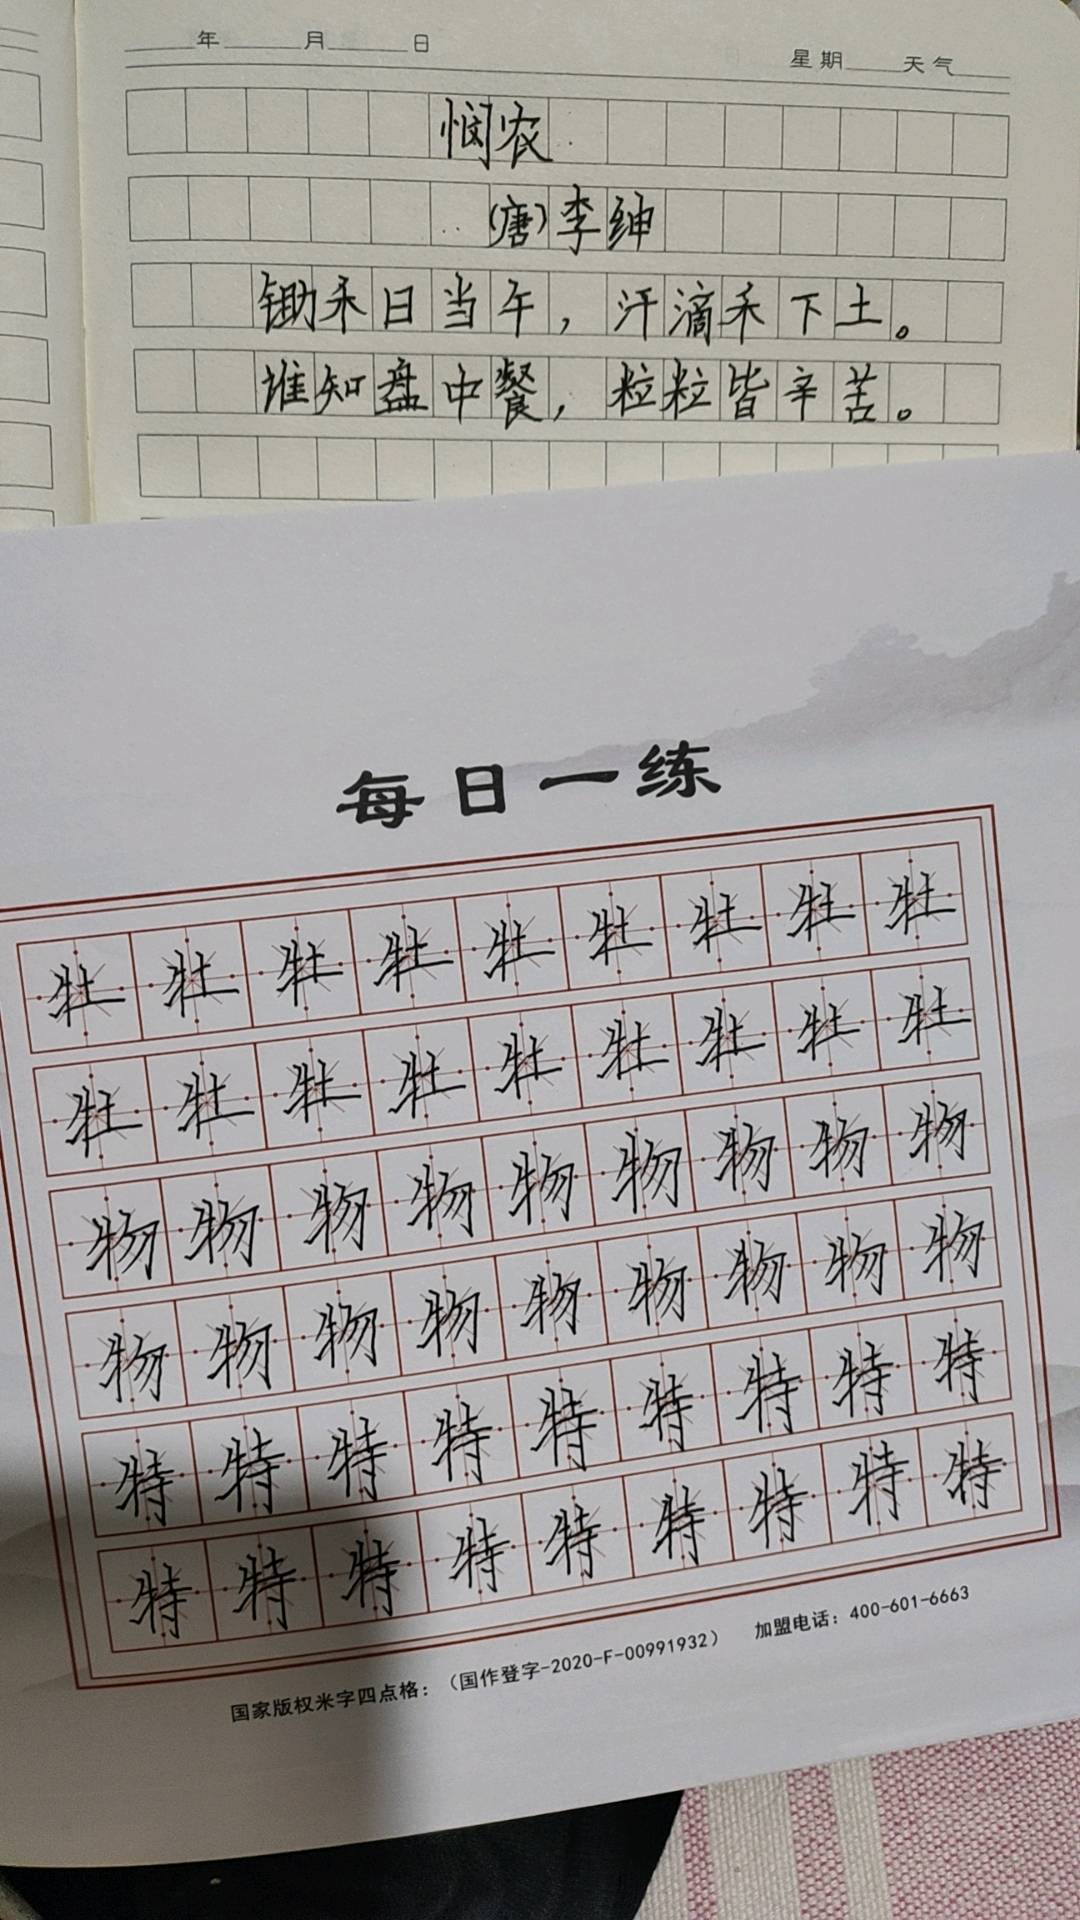 年 月 日 星期 天气
悯农
(唐)李绅
锄禾日当午，汗滴禾下土。
谁知盘中餐，粒粒皆辛苦。
每日一练
牡牡牡牡牡牡牡牡牡
牡牡牡牡牡牡牡牡牡
物物物物物物物物物
物物物物物物物物物
特特特特特特特特特
特特特特特特特特特
国家版权米字四点格：（国作登字-2020-F-00991932） 加盟电话：400-601-6663